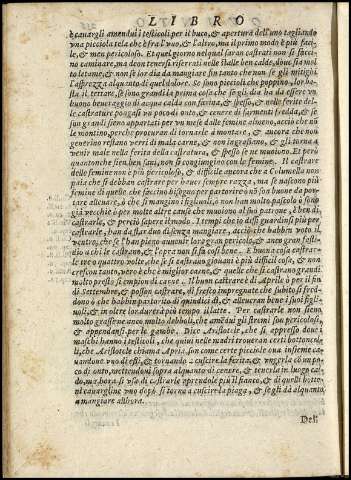 LIBRO
è cavargli amendui i testicoli per il buco, & apertura dell'uno tagliando
una picciola tela che è fra l'uno, & l'altro, ma il primo modo è più faci-
le, & men pericoloso. Et quel giorno nel qual saran castrati non si facci-
no caminare, ma deon tenersi riserrati nelle stalle ben calde, dove sia mol-
to letame, & non se lor dia da mangiare fin tanto che non se gli mitighi
l'asprezza alquanto di quel dolore. Se sono piccioli, che poppino, lor ba-
sta il lettare, se sono grandi la prima cosa che se gli dia ha da essere un
buono beveraggio di acqua calda con farina, & spesso, & nelle ferite del-
le castrature poggasi un poco di onto, & cenere di sarmenti fredda, & se
son grandi sieno appartati per un mese dalle femine almeno, acciò che nō
le montino, perche procuran di tornarle à montare, & ancora che non
generino restano verri di mala carne, & non ingrassano, & gli torna à
venir male nella ferita della castratura, & spesso se ne muoiono. Et però
quantonche sien ben sani, non si congiungino con le femine. Il castrare
delle femine non è più pericoloso, & difficile ancora che a Columella non
paia che si debban castrare per haver sempre razza, ma se nascono più
femine di quelle che faccino bisogno per partorire ò nō son buone da pou-
tare allevare, ò che si mangino i figliuoli, ò non han molto pascolo ò sono
già vecchie ò per molte altre cause che muovono al suo patrone, è ben di
castrarle, & perciò sapere il modo. I tempi che io dissi guardinsi più per
castrarle, han da star duo di senza mangiare, acciò che habbin voto il
ventre, che se l'han pieno aumenta loro gran pericolo, & anco gran fasti-
dio a chi le castran, & l'opra non si fa così bene. E buona cosa castrar-
le tre o quattro volte, che se si castrano giovani è più difficil cosa, & non
crescon tanto, vero è che è miglior carne, & quelle che si castrano grandi
molto presto si empion di carce. Il buon cattare è di Aprile ò per il fin
di Settembre, & posson castrare, di fresco impregnate che subito si fred-
dono ò che habbin partorito di quindici dì, & alleveran bene i suoi figli-
uoli, & in oltre londurerà più tempo illatte. Per castrarle non sieno
molto grasse ne anco molto debboli, che amēdui gli stremi son pericolosi,
& appendansi per le gambe. Dice Aristotele, che si appresso dove i
maschi hanno i testicoli, che quivi nelle madri troveran certi bottoncu-
li, che Aristotele chiama Apria, son come certe picciole ova insieme ca-
uandone uno di essi, & tornando à cuscire la ferita, & ungerla cō un po-
co di onto, mettendovi sopra alquanto di cenere, & tenerla in luogo cal-
do, ma hora si usa di castrarle aprendole più il fianco, & di quelli botto-
ni cavargline uno dopò si torna a cuscire la piaga, & se gli dà alquanto
a mangiare allhora.
Deli